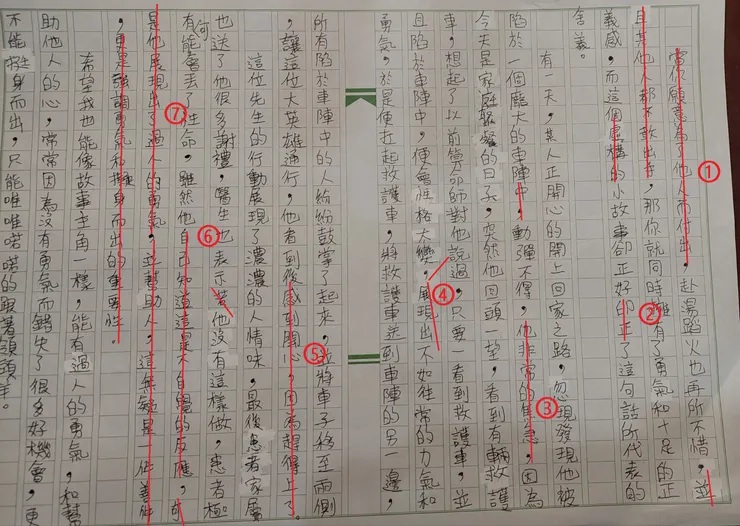 當你願意為了他人而付出，赴湯蹈火也再所不惜，並
且其他人都不敢出去，那你就同時擁有了勇氣和十足的正
義感，而這個虛構的小故事卻正好印正了這句話所代表的
含義。
有一天，某人正開心的開上回家之路，忽現發現他被
陷於一個龐大的車陣中，動彈不得，他非常的焦急，因為
今天是家庭聚餐的日子，突然他回頭一望，看到有輛救護
車，想起了以前算命師對他說過，只要一看到救護車，並
且陷於車陣中，便會性格大變，展現出不如往常的力氣和
勇氣，於是便扛起救護車，將救護車送到車陣的另一邊，
所有陷於車陣中的人紛紛鼓掌了起來，並將車子移至兩側
，讓這位大英雄通行，他看到後感到開心，因為趕得上了。
這位先生的行動展現了濃濃的人情味，最後患者家屬
也送了他很多謝禮，醫生也表示若他沒有這樣做，患者極
有可能會丟了性命，雖然他自己知道這是不自覺的反應，可
是他展現出了過人的勇氣，並幫助人，這無疑是
，更是強調勇氣和挺身而出的重要性。
希望我也能像故事主角一樣，能有過人的勇氣，和幫
助他人的心，常常因為沒有勇氣而錯失了很多好機會，更
不能挺身而出，只能唯唯喏喏的跟著領頭羊。
①
②
③
④
⑤
⑥
⑦